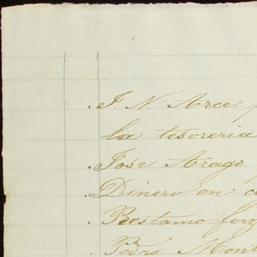 . J. N. Arce
la tesoreria
. Jose Arago
Dinero en c
. Prestamo for
. Pedro Mont